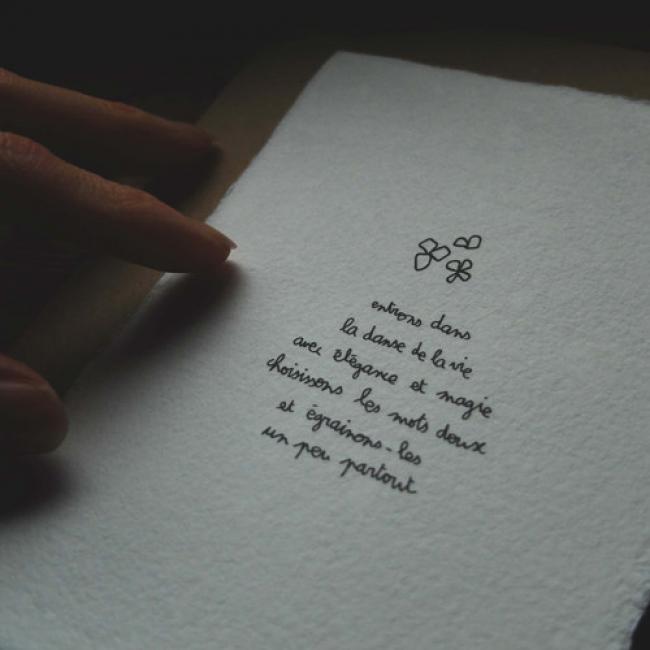 entrons dans
la danse de la vie
avec élégance et magie
choisissons les mots doux
et égrainons-les
un peu partout